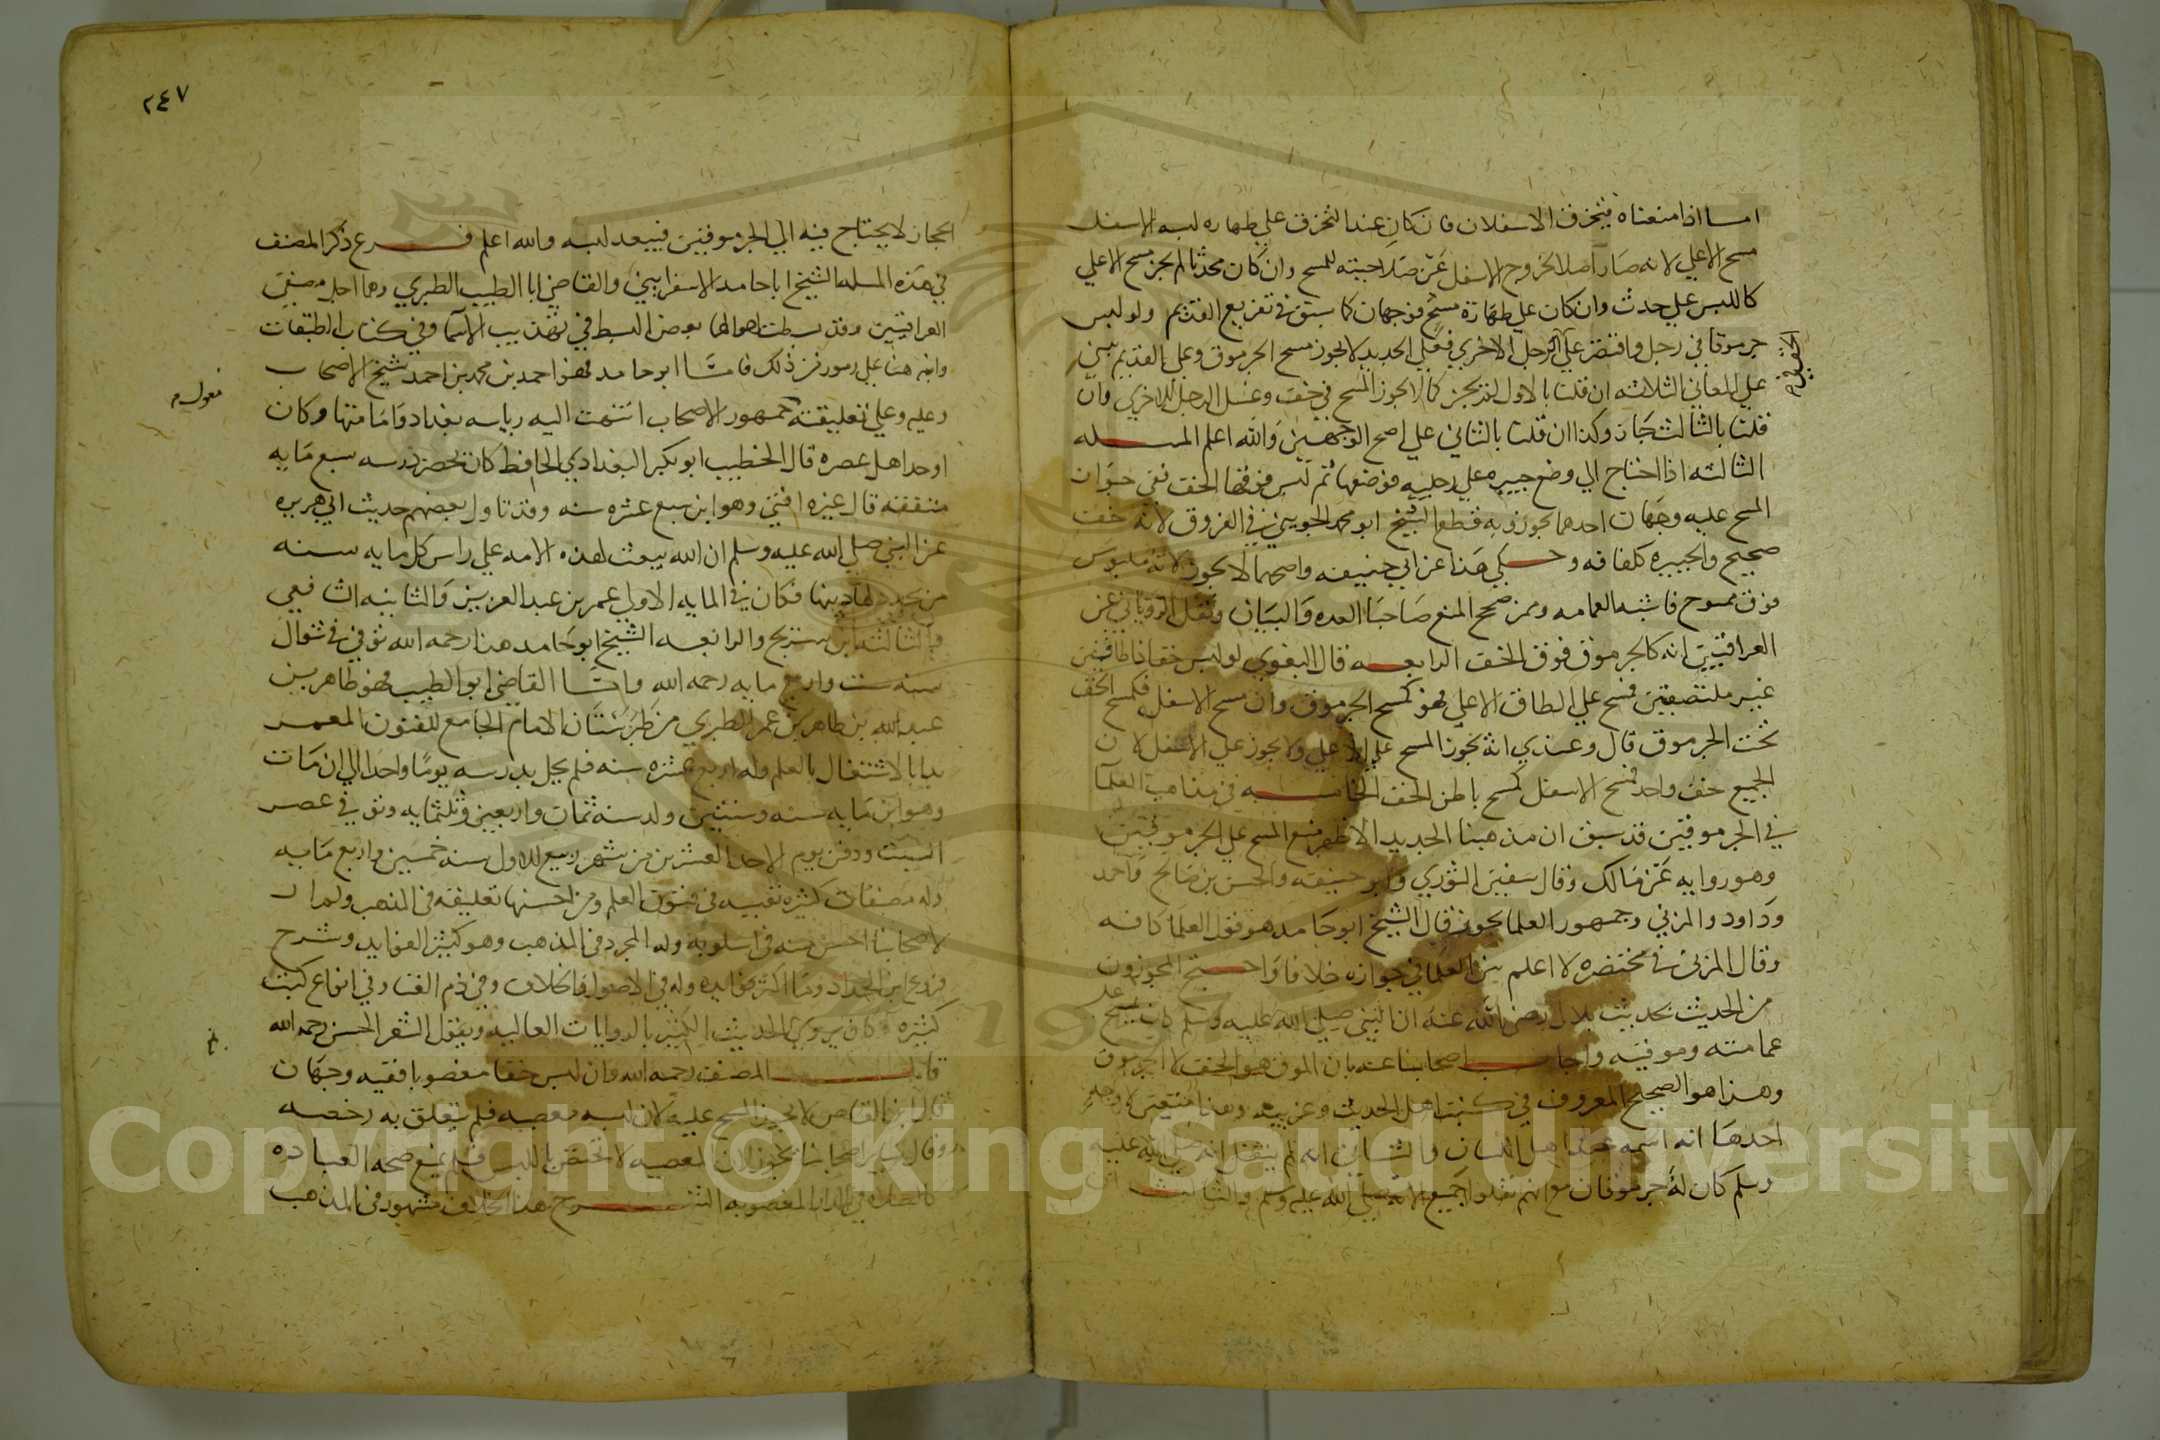 اما اذا منعناه فتخرق الاسفلان فان كان عند التخرق علي طهاره لبسه الاسفل
مسح الاعلي لانه صار اصلا لخروج الاسفل عن صلاحيته للمسح وان كان محدثا لم يجز مسح الاعلي
كاللبس علي حدث وان كان علي طهارة مسح فوجهان كما سبق في تفريع القديم ولو لبس
جرموقا في رجل واقتصر علي الرجل الاخري فعلي الجديد لا يجوز مسح الجرموق وعلي القديم يبني
علي المعاني الثلاثه ان قلنا بالاول لم يجز كما لا يجوز المسح في خف وغسل الرجل الاخري وان
قلنا بالثالث جاز وكذا ان قلنا بالثاني علي اصح الوجهين والله اعلم المسله
الثالثه اذا احتاج الي وضع جبيره علي رجليه فوضعها ثم لبس فوقها الخف ففي جواز
المسح عليه وجهان احدهما يجوز وبه قطع الشيخ ابو محمد الجويني في الفروق لانه خف
صحيح والجبيره كلفافه وحكي هذا عن ابي حنيفه واصحهما لا يجوز لانه ملبوس
فوق ممسوح فاشبه العمامه وممن صحح المنع صاحبا العده والبيان ونقل الروياني عن
العراقيين انه كالجرموق فوق الخف الرابعه قال البغوي لو لبس خفا ذا طاقين
غير ملتصقين فمسح علي الطاق الاعلي فهو كمسح الجرموق وان مسح الاسفل فكمسح الخف
تحت الجرموق قال وعندي انه يجوز المسح علي الاعلي ولا يجوز علي الاسفل لان
الجميع خف واحد فمسح الاسفل كمسح باطن الخف الخامسه في مذاهب العلما
في الجرموقين قد سبق ان مذهبنا الجديد الاظهر منع المسح علي الجرموقين
وهو روايه عن مالك وقال سفين الثوري وابو حنيفه والحسن بن صالح واحمد
وداود والمزني وجمهور العلما يجوز قال الشيخ ابو حامد هو قول العلما كافه
وقال المزني في مختصره لا اعلم بين العلما في جوازه خلافا واحتج المجوزون
من الحديث بحديث بلال رضي الله عنه ان النبي صلي الله عليه وسلم كان يمسح علي
عمامته وموقيه واجاب اصحابنا عنه بان الموق هو الخف لا الجرموق
وهذا هو الصحيح المعروف في كتب اهل الحديث وغريبه وهذا متعين لاوجه
احدها انه اسمه عند اهل اللسان والثاني انه لم ينقل انه صلي الله عليه
وسلم كان له جرموقان مع انهم نقلوا جميع الاته صلي الله عليه وسلم والثالث ان
٢٤٧
الحجاز لا يحتاج فيه الي الجرموقين فيبعد لبسه والله اعلم فرع ذكر المصنف
في هذه المسله الشيخ ابا حامد الاسفراييني والقاضي ابا الطيب الطبري وهما اجل مصنفي
العراقيين وقد بسطت احوالهما بعض البسط في تهذيب الاسما وفي كتاب الطبقات
وانبه هنا علي رموز من ذلك فاما ابو حامد فهو احمد بن محمد بن احمد شيخ الاصحاب
وعليه وعلي تعليقته جمهور الاصحاب انتهت اليه رياسه بغداد وامامتها وكان
اوحد اهل عصره قال الخطيب ابو بكر البغدادي الحافظ كان يحضر تدريسه سبع مايه
متفقه قال غيره افتي وهو ابن سبع عشره سنه وقد تاول بعضهم حديث ابي هريره
عن النبي صلي الله عليه وسلم ان الله يبعث لهذه الامه علي راس كل مايه سنه
من يجدد لها دينها فكان في المايه الاولي عمر بن عبد العزيز والثانيه الشافعي
والثالثه ابن سريج والرابعه الشيخ ابو حامد هذا رحمه الله توفي في شوال
سنه ست واربع مايه رحمه الله واما القاضي ابو الطيب فهو طاهر بن
عبد الله بن طاهر بن عمر الطبري من طبرستان الامام الجامع للفنون المعمر
بدا بالاشتغال بالعلم وله اربع عشره سنه فلم يخل بدرسه يوما واحدا الي ان مات
وهو ابن مايه سنه وسنتين ولد سنة ثمان واربعين وثلثمايه وتوفي في عصر
السبت ودفن يوم الاحد العشرين من شهر ربيع الاول سنه خمسين واربع مايه
وله مصنفات كثيره نفيسه في فنون العلم ومن احسنها تعليقه في المذهب ولم ار
لاصحابنا احسن منه في اسلوبه وله المجرد في المذهب وهو كثير الفوايد وشرح
فروع ابن الحداد وما اكثر فوايده وله في الاصول والخلاف وفي ذم الغنا وفي انواع كتب
كثيره وكان يروي الحديث الكثير بالروايات العاليه ويقول الشعر الحسن رحمه الله
قال المصنف رحمه الله وان لبس خفا مغصوبا ففيه وجهان
قال ابن القاص لا يجوز المسح عليه لان لبسه معصيه فلم يتعلق به رخصه
وقال ساير اصحابنا يجوز لان المعصيه لا تختص باللبس فلم يمنع صحه العباده
كالصلاه في الدار المغصوبه الشرح هذا الخلاف مشهور في المذهب